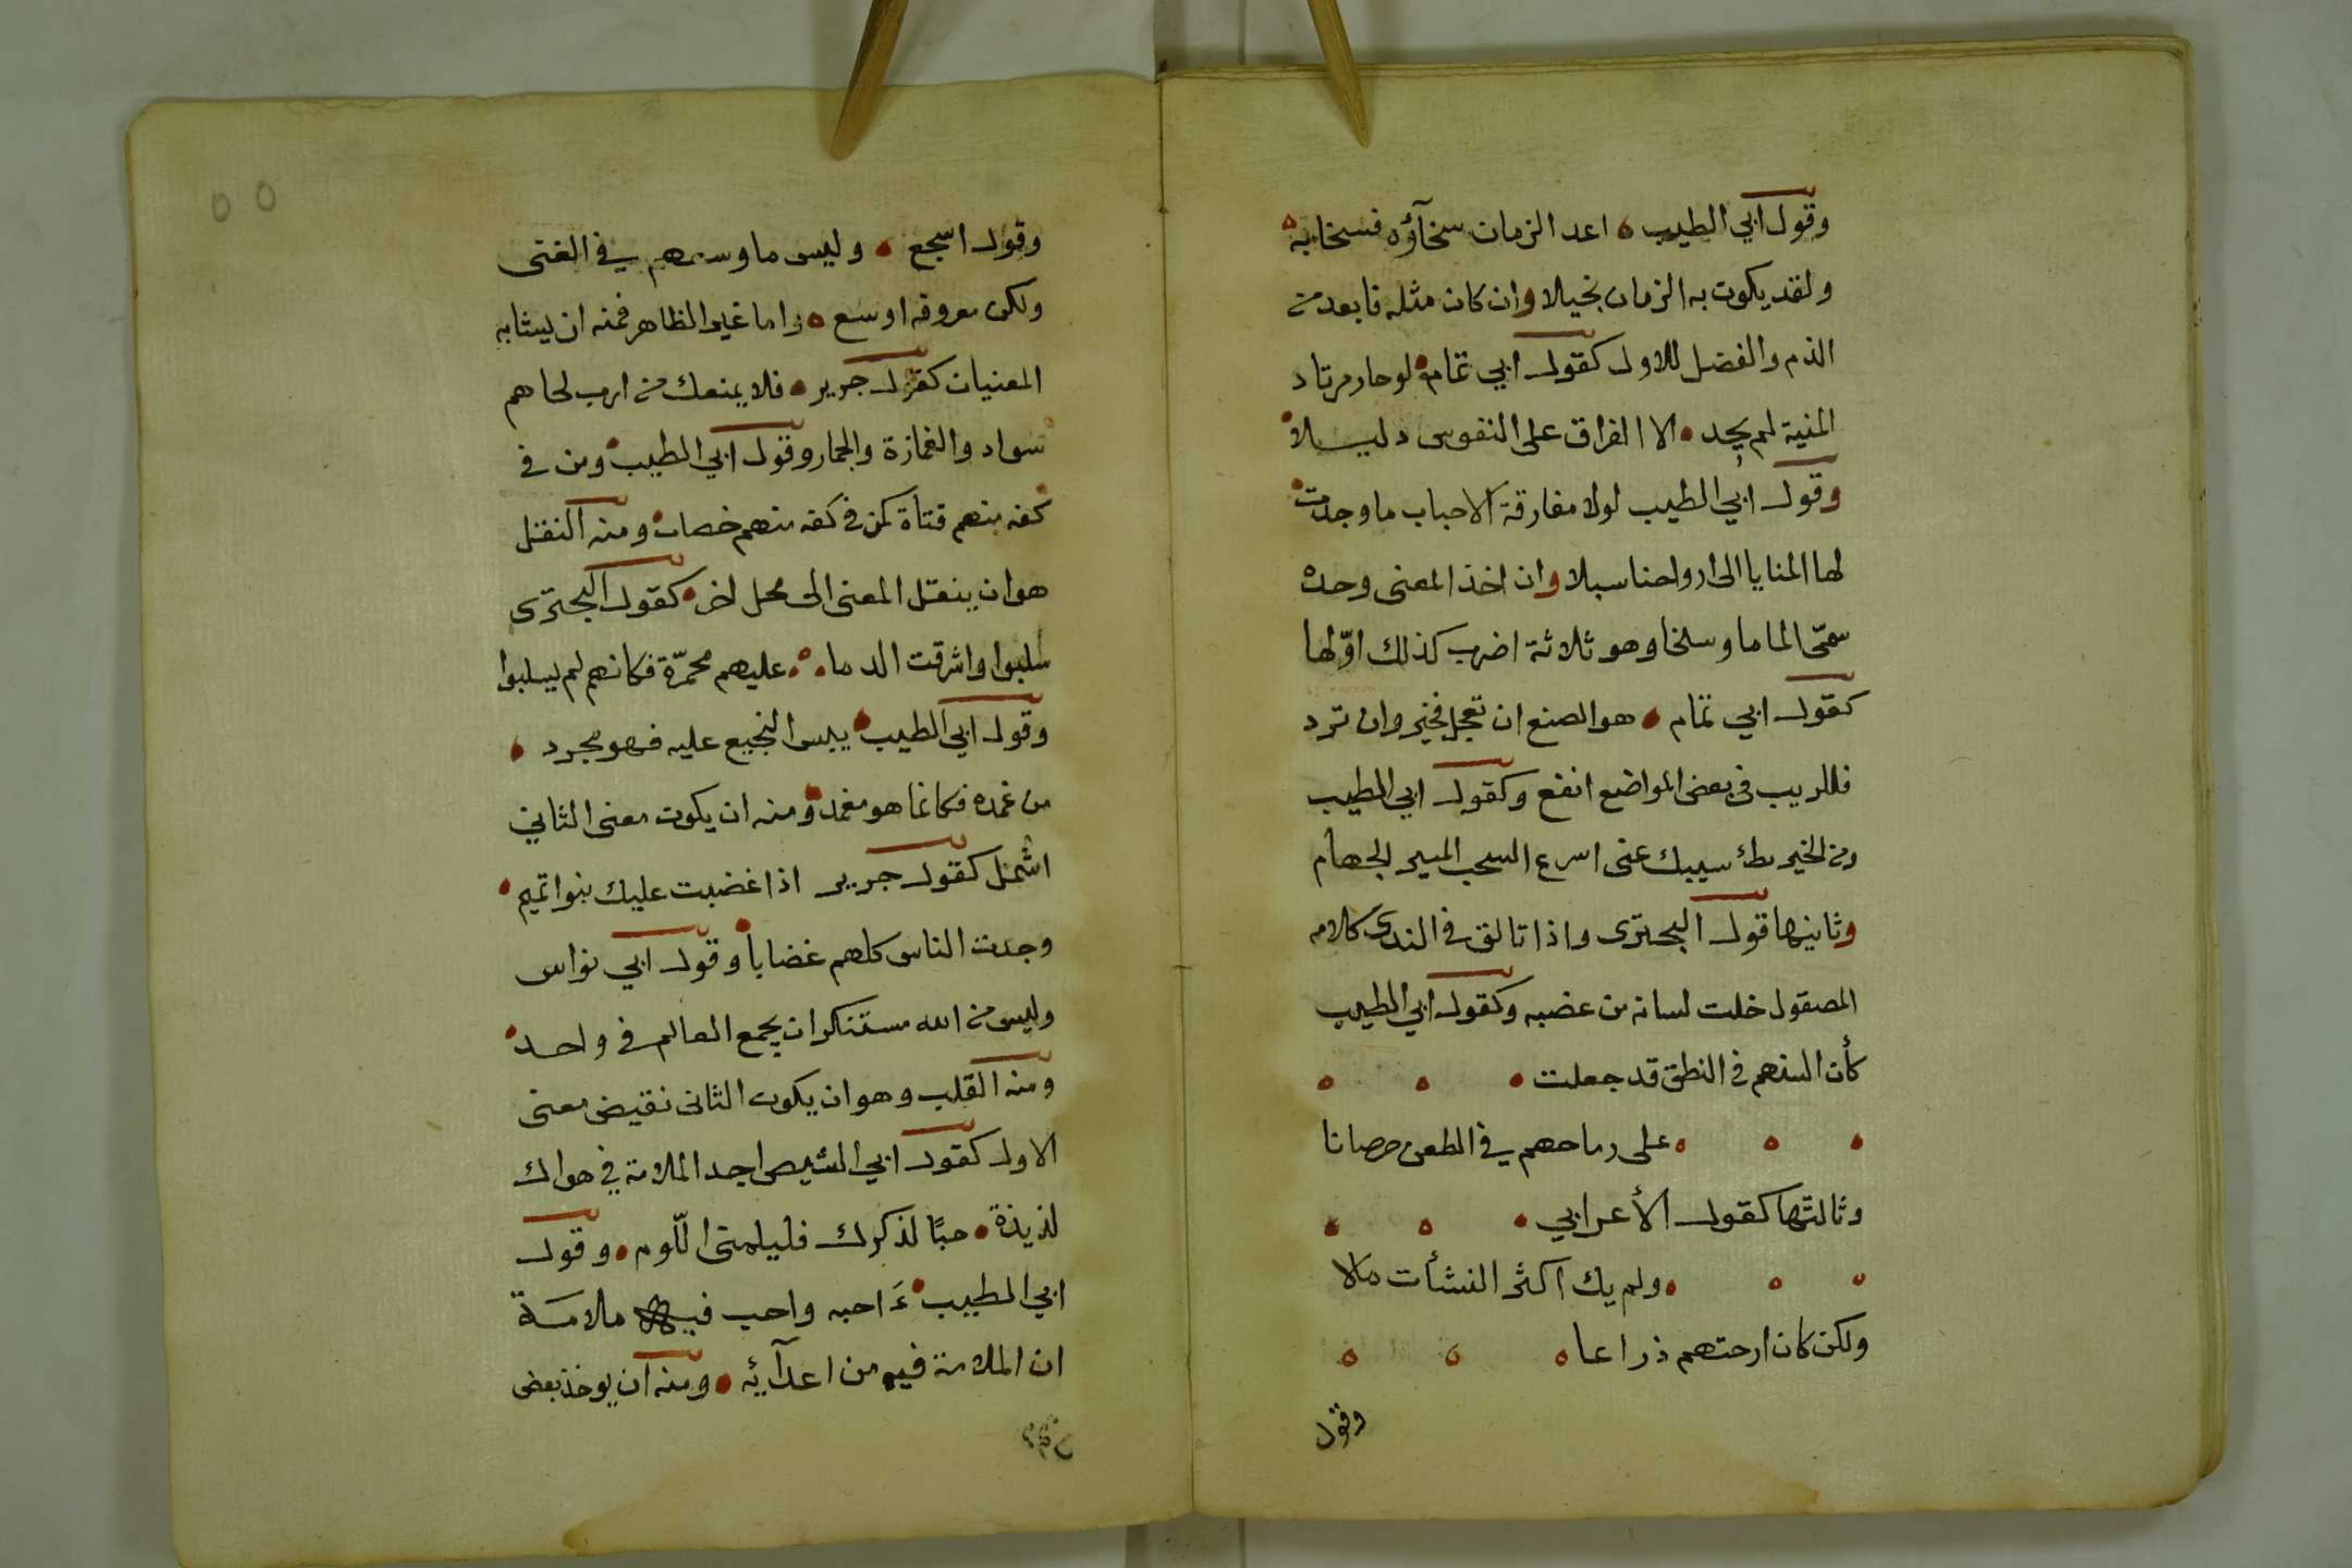 وقول ابي الطيب اعد الزمان سخآؤه فسخابه
ولقد يكون به الزمان بخيلا وان كان مثله فابعد من
الذم والفضل للاول كقول ابي تمام لو حار مرتاد
المنية لم يجد الا الفراق على النفوس دليلا
وقول ابي الطيب لولا مفارقة الاحباب ما وجدت
لها المنايا الى ارواحنا سبلا وان اخذ المعنى وحده
سمّى الماما وسلخا وهو ثلاثة اضرب كذلك اوّلها
كقول ابي تمام هو الصنع ان تعجل فخير وان ترد
فللريب في بعض المواضع انفع وكقول ابي الطيب
ومن الخير بطئ سيبك عنى اسرع السحب المسير الجهام
وثانيها قول البحترى واذا تالق في الندى كلامه
المصقول خلت لسانه من عضبه وكقول ابي الطيب
كأن السنهم في النطق قد جعلت
على رماحهم في الطعن حصانا
وثالثها كقول الأعرابي
ولم يك اكثر النشأت مالا
ولكن كان ارحتهم ذراعا
وقول
٥٥
وقول اسجع وليس ما وسعهم في الغنى
ولكن معروفه اوسع واما غير الظاهر فمنه ان يشابه
المعنيان كقول جرير فلا يمنعك من ارب لحاهم
سواد والغمازة والجمار وقول ابي الطيب ومن في
كفه منهم قتاة كمن في كفه منهم خصاب ومنه النقل
هو ان ينقل المعنى الى محل اخر كقول البحترى
سلبوا واشرقت الدما عليهم محمرّة فكانهم لم يسلبوا
وقول ابي الطيب يبس النجيع عليه فهو مجرد
من غمده فكانما هو مغمد ومنه ان يكون معنى الثاني
اشمل كقول جرير اذا غضبت عليك بنوا تميم
وجدت الناس كلهم غضابا وقول ابي نواس
وليس من الله مستنكر ان يجمع العالم في واحد
ومنه القلب وهو ان يكون الثاني نقيض معنى
الاول كقول ابي الشيص اجد الملامة في هواك
لذيذة حبًا لذكرك فليلمنى اللّوم وقول
ابي الطيب ءَ احبه واحب فيه ملامة
ان الملامة فيه من اعدآئه ومنه ان يوخذ بعض